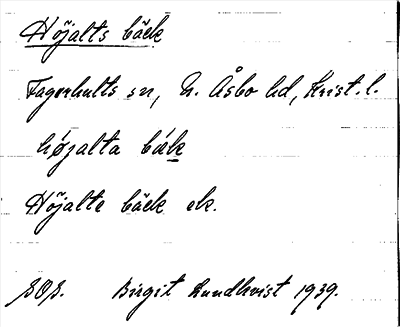 Höjalts bäck
Fagerhults sn, N. Åsbo hd, Krist. l.
højalta bæk
Höjalte bäck ek.
SOS. Birgit Lundkvist 1939.